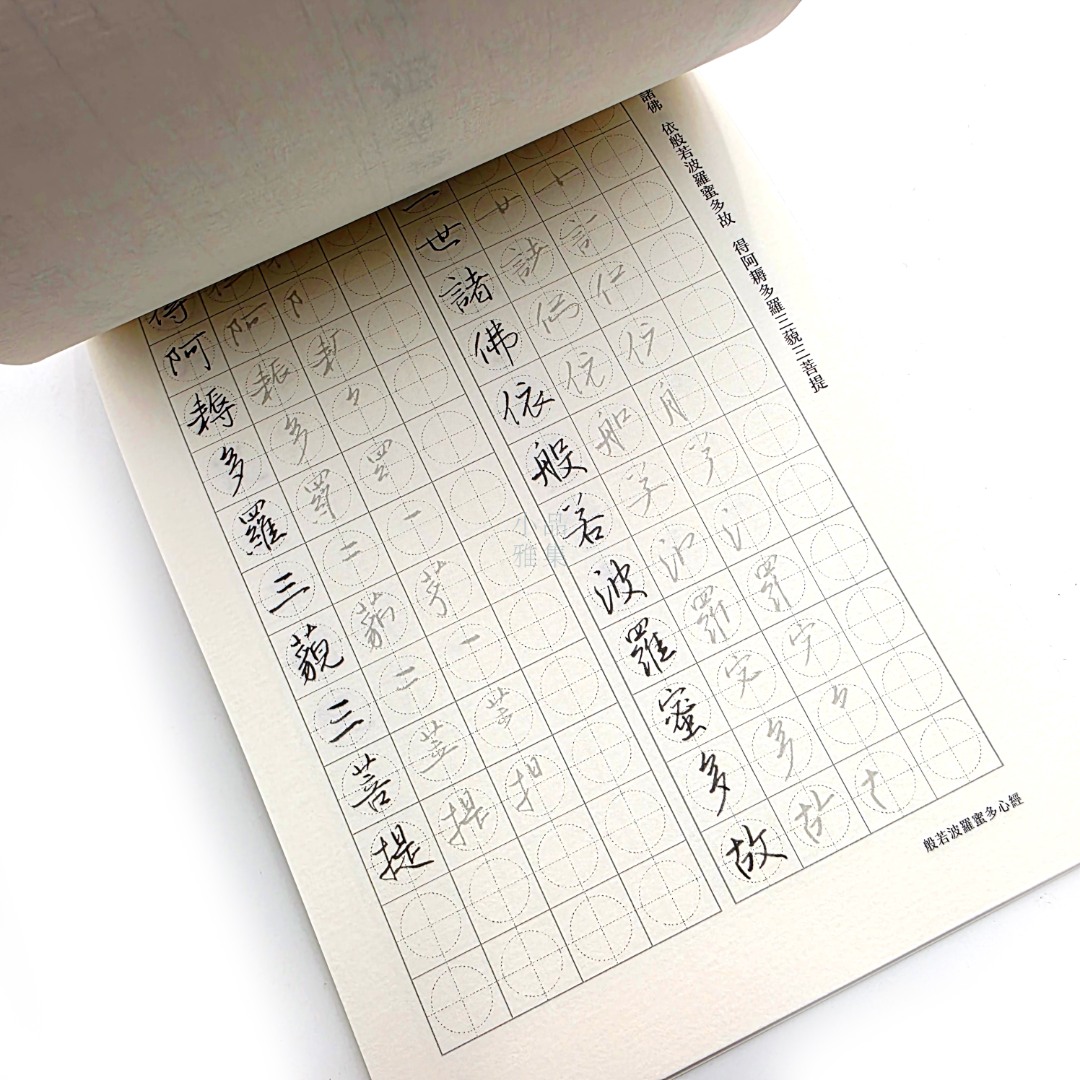 諸佛 依般若波羅蜜多故 得阿耨多羅三藐三菩提
世諸佛依般若波羅蜜多故
得阿耨多羅三藐三菩提
般若波羅蜜多心經
小品
雅集